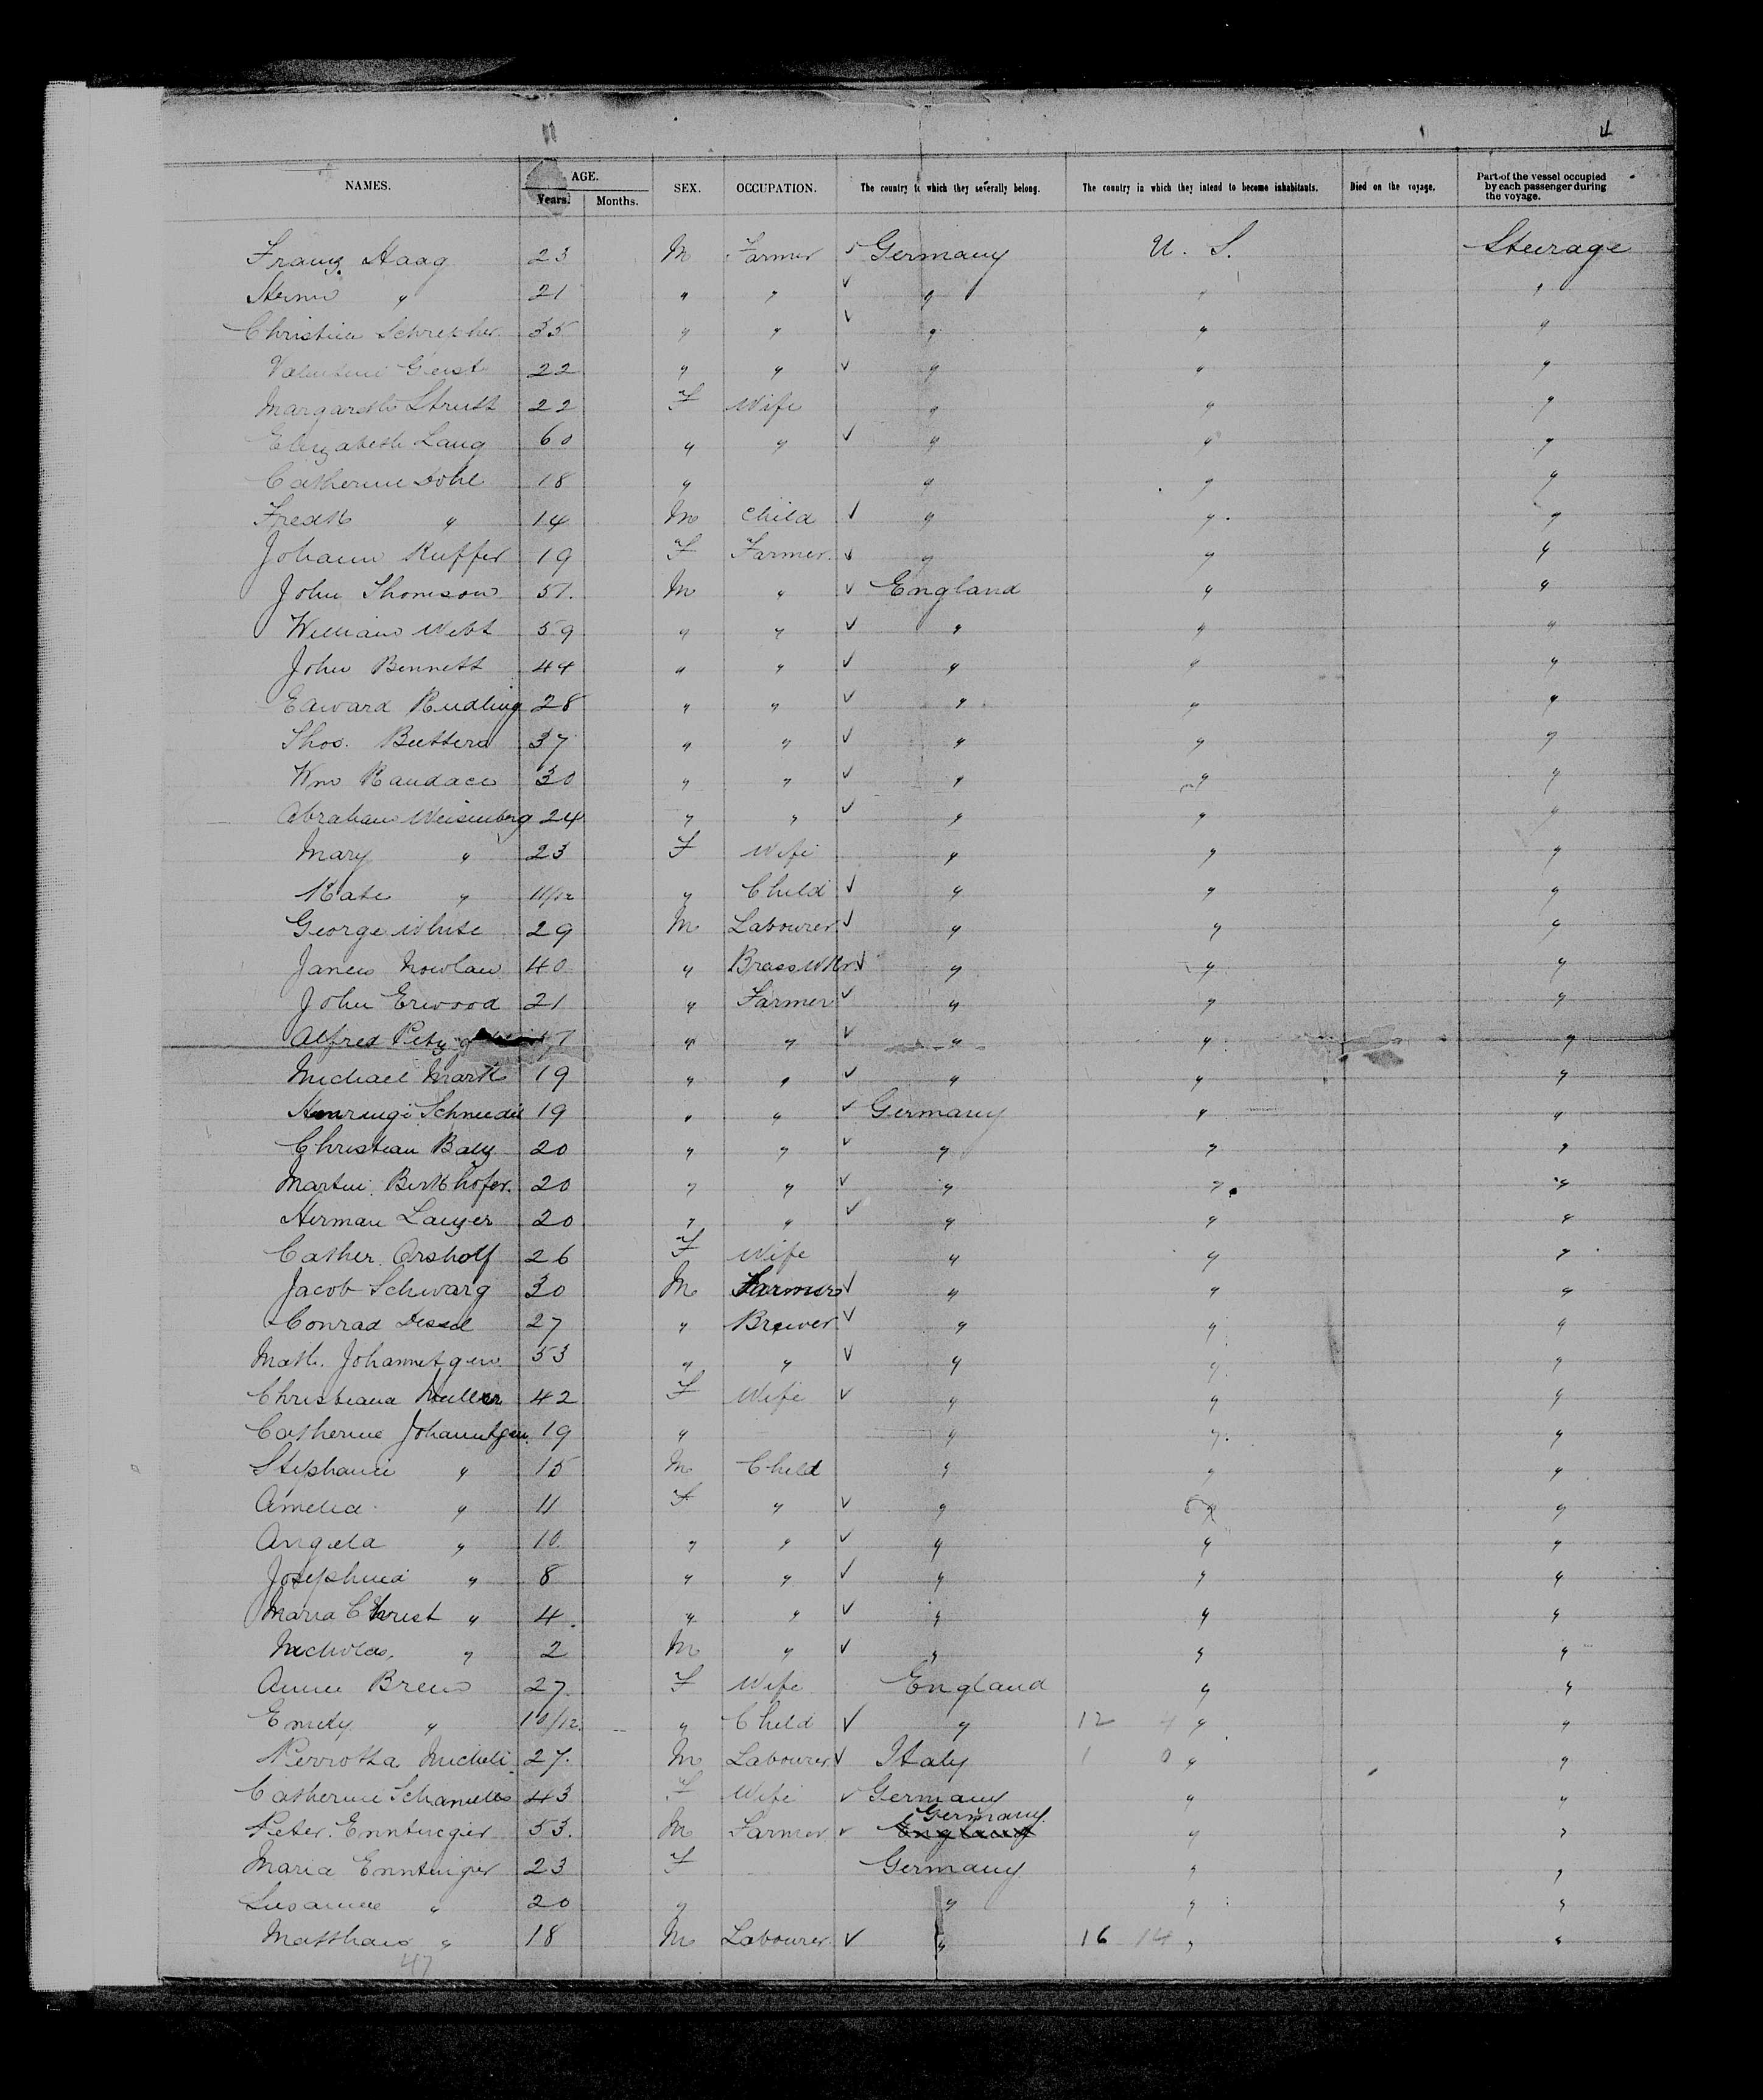 4
NAMES. AGE. Years. Months. SEX. OCCUPATION. The country to which they severally belong. The country in which they intend to become inhabitants. Died on the voyage. Part of the vessel occupied by each passenger during the voyage.
Franz Haag 23 M Farmer ✓ Germany U. S. Steerage
" 21 " " ✓ " " "
Christian 35 " " ✓ " " "
Valentine Geist 22 " " ✓ " " "
Margareth Strutt 22 F Wife " " "
Elizabeth Lang 60 " " ✓ " " "
Catherine Dohl 18 " " " "
Fredk " 14 M Child ✓ " " "
Johann Kuffer 19 F Farmer. ✓ " " "
John Thomson 51. M " ✓ England " "
William Webt 59 " " ✓ " " "
John Bennett 44 " " ✓ " " "
Edward Rudling 28 " " ✓ " " "
Thos. Butters 37 " " ✓ " " "
Wm Randace 30 " " ✓ " " "
Abraham Weisenberg 24 " " ✓ " " "
Mary " 23 F Wife " " "
Kate " 11/12 " Child ✓ " " "
George White 29 M Labourer ✓ " " "
James Nowlan 40 " Brasswkr. ✓ " " "
John Erwood 21 " Farmer ✓ " " "
Alfred " " ✓ " " "
Michael Mark 19 " " ✓ " " "
Schneider 19 " " ✓ Germany " "
Christian Baly 20 " " ✓ " " "
Martin Birkhofer. 20 " " ✓ " " "
Herman Langer 20 " " ✓ " " "
Cather. Orsholf 26 F Wife " " "
Jacob Schwarz 30 M Farmer ✓ " " "
Conrad Dessel 27 " Brewer ✓ " " "
Math. Johannetgen 53 " " ✓ " " "
Christiana Muller 42 F Wife ✓ " " "
Catherine Johanntgen. 19 " " " "
Stephanie " 15 M Child " " "
Amelia " 11 F " ✓ " " "
Angela " 10. " " ✓ " " "
Josephina " 8 " " ✓ " " "
Maria Christ " 4. " " ✓ " " "
Nicholas. " 2 M " ✓ " " "
Annie Brews 27. F Wife England " "
Emily " 10/12. " Child ✓ " 12 4 " "
Perrotta Micheli 27. M Labourer. ✓ Italy 1 0 " "
Catherine 43 F Wife ✓ Germany " "
Peter. Enntinger 53. M Farmer ✓ Germany England " "
Maria Enntinger 23 F Germany " "
Susanna " 20 " " " "
Matthais " 18 M Labourer. ✓ " 16 14 " "
47